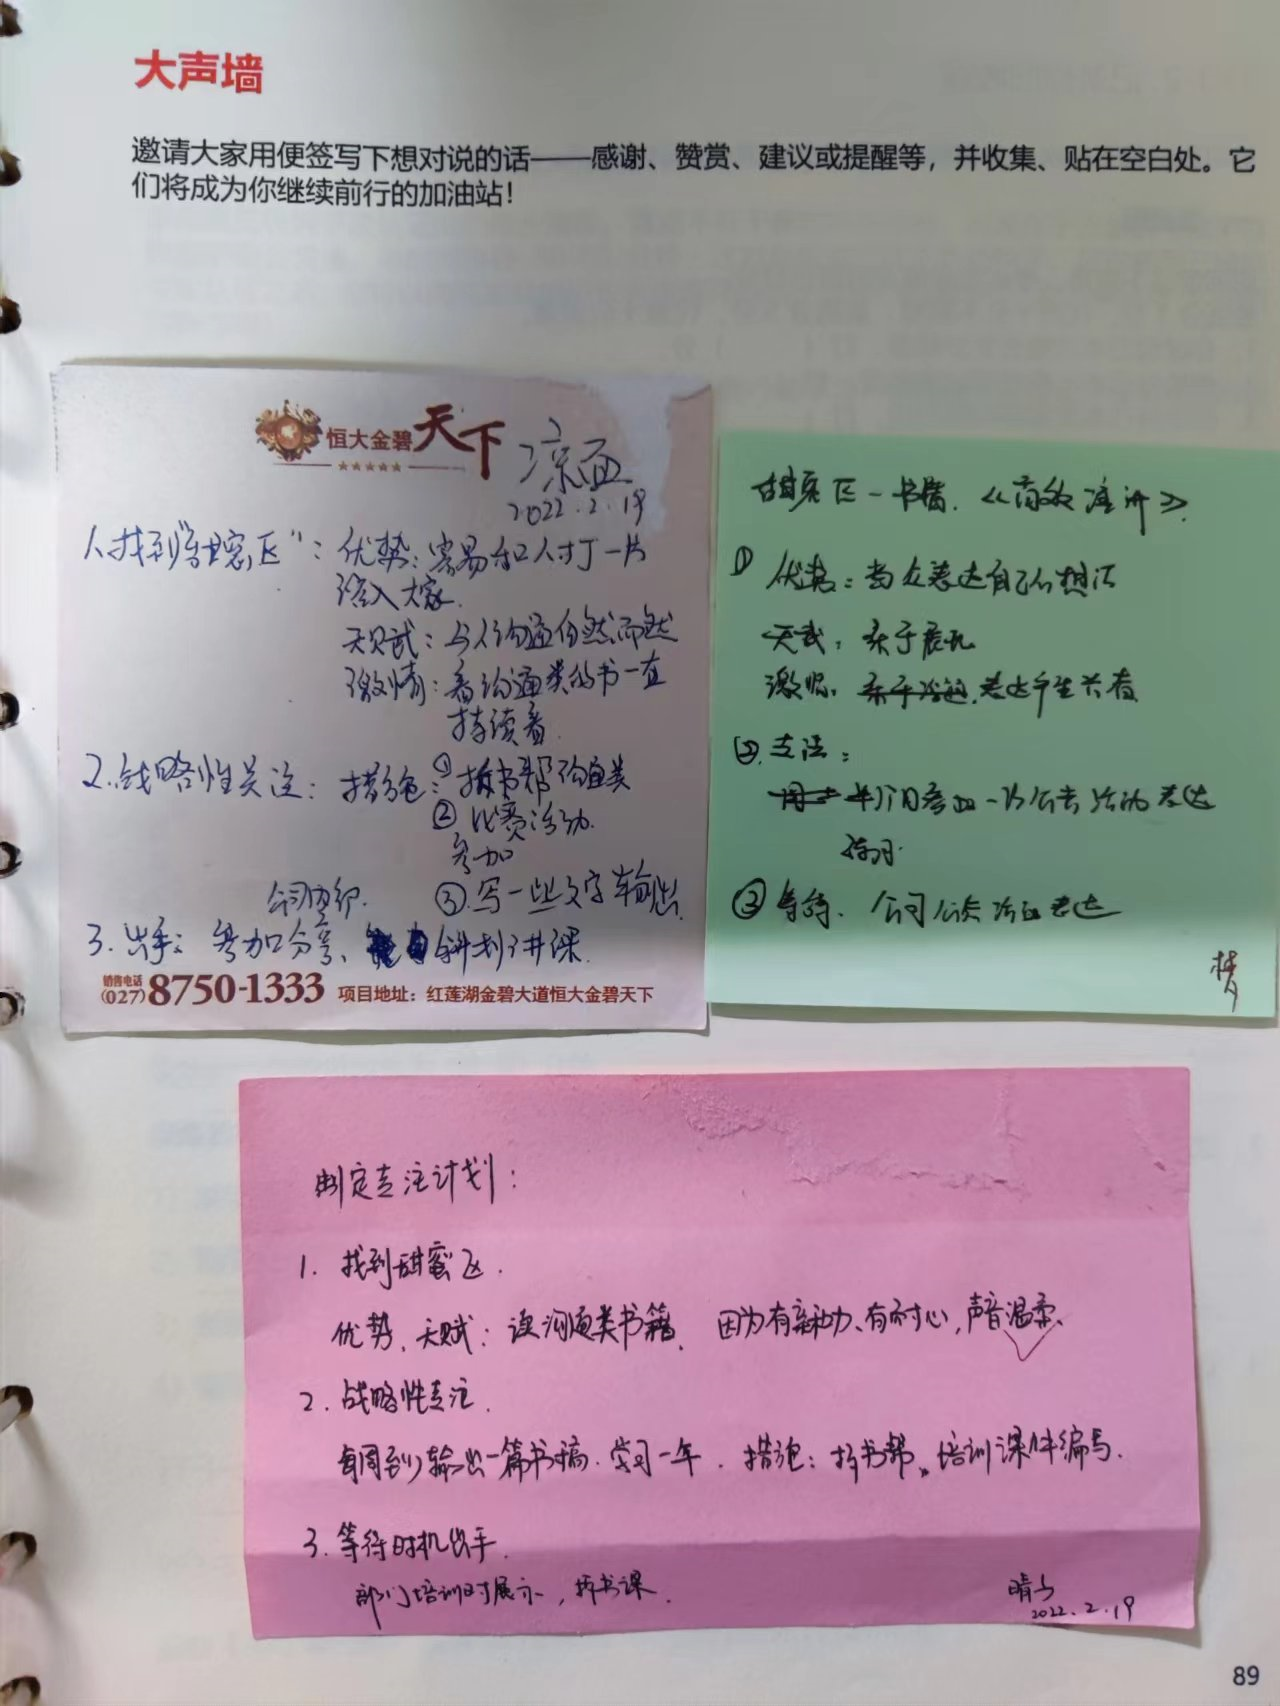 大声墙
邀请大家用便签写下想对说的话——感谢、赞赏、建议或提醒等，并收集、贴在空白处。它
们将成为你继续前行的加油站！
恒大金碧天下
凉面
2022.2.19
找到"甜蜜区"：优势：容易和人打丁一片
大家.
天赋：与人沟通自然而然
激情：看沟通类的书一直
持续看.
2.战略性关注：措施：①拆书帮沟通类
② 比赛活动.
参加
③.写一些文字输出.
3.出手：参加分享、计划讲课.
销售电话
(027)8750-1333 项目地址：红莲湖金碧大道恒大金碧天下
甜蜜区一书籍.《高效演讲》.
① 优势：当众表达自己的想法
天赋：乐于
激情.
②
③ 等待. 公司公众活动表达
梦
制定专注计划：
1. 找到甜蜜区.
优势、天赋：读沟通类书籍. 因为有亲和力、有耐心，声音温柔.
2. 战略性专注.
每周到输出一篇书稿.学习一年. 措施：拆书帮、培训课件编写.
3. 等待时机出手.
部门培训时展示，拆书课.
2022.2.19
89